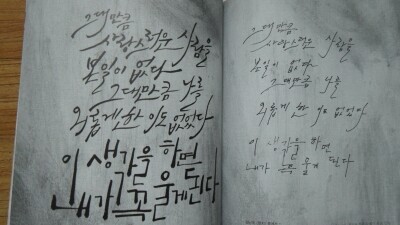 그대만큼
사랑스러운 사람을
본일이 없다
그대만큼 나를
외롭게한 이도 없었다
이 생각을 하면
내가 꼭 울게된다
그대만큼
사랑스러운 사람을
본일이 없다
그대만큼 나를
외롭게 한 이도 없었다
이 생각을 하면
내가 꼭 울게 된다